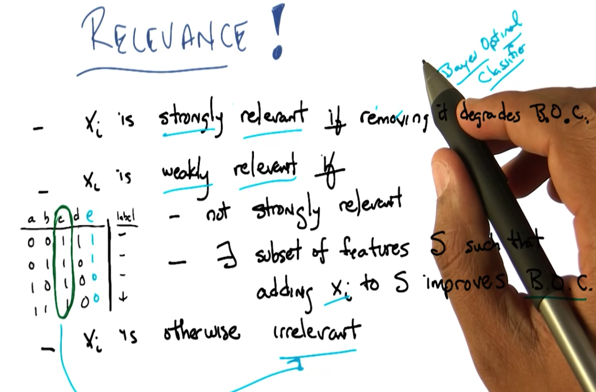 RELEVANCE!
Bayes Optimal
Classifier
- Xi is strongly relevant if removing it degrades B.O.C.
- Xi is weakly relevant if
- not strongly relevant
- ∃ subset of features S such that
adding Xi to S improves B.O.C.
a b c d e label
0 0 1 1 1 -
0 1 1 0 1 -
1 0 1 1 0 -
1 1 1 0 0 +
- Xi is otherwise irrelevant